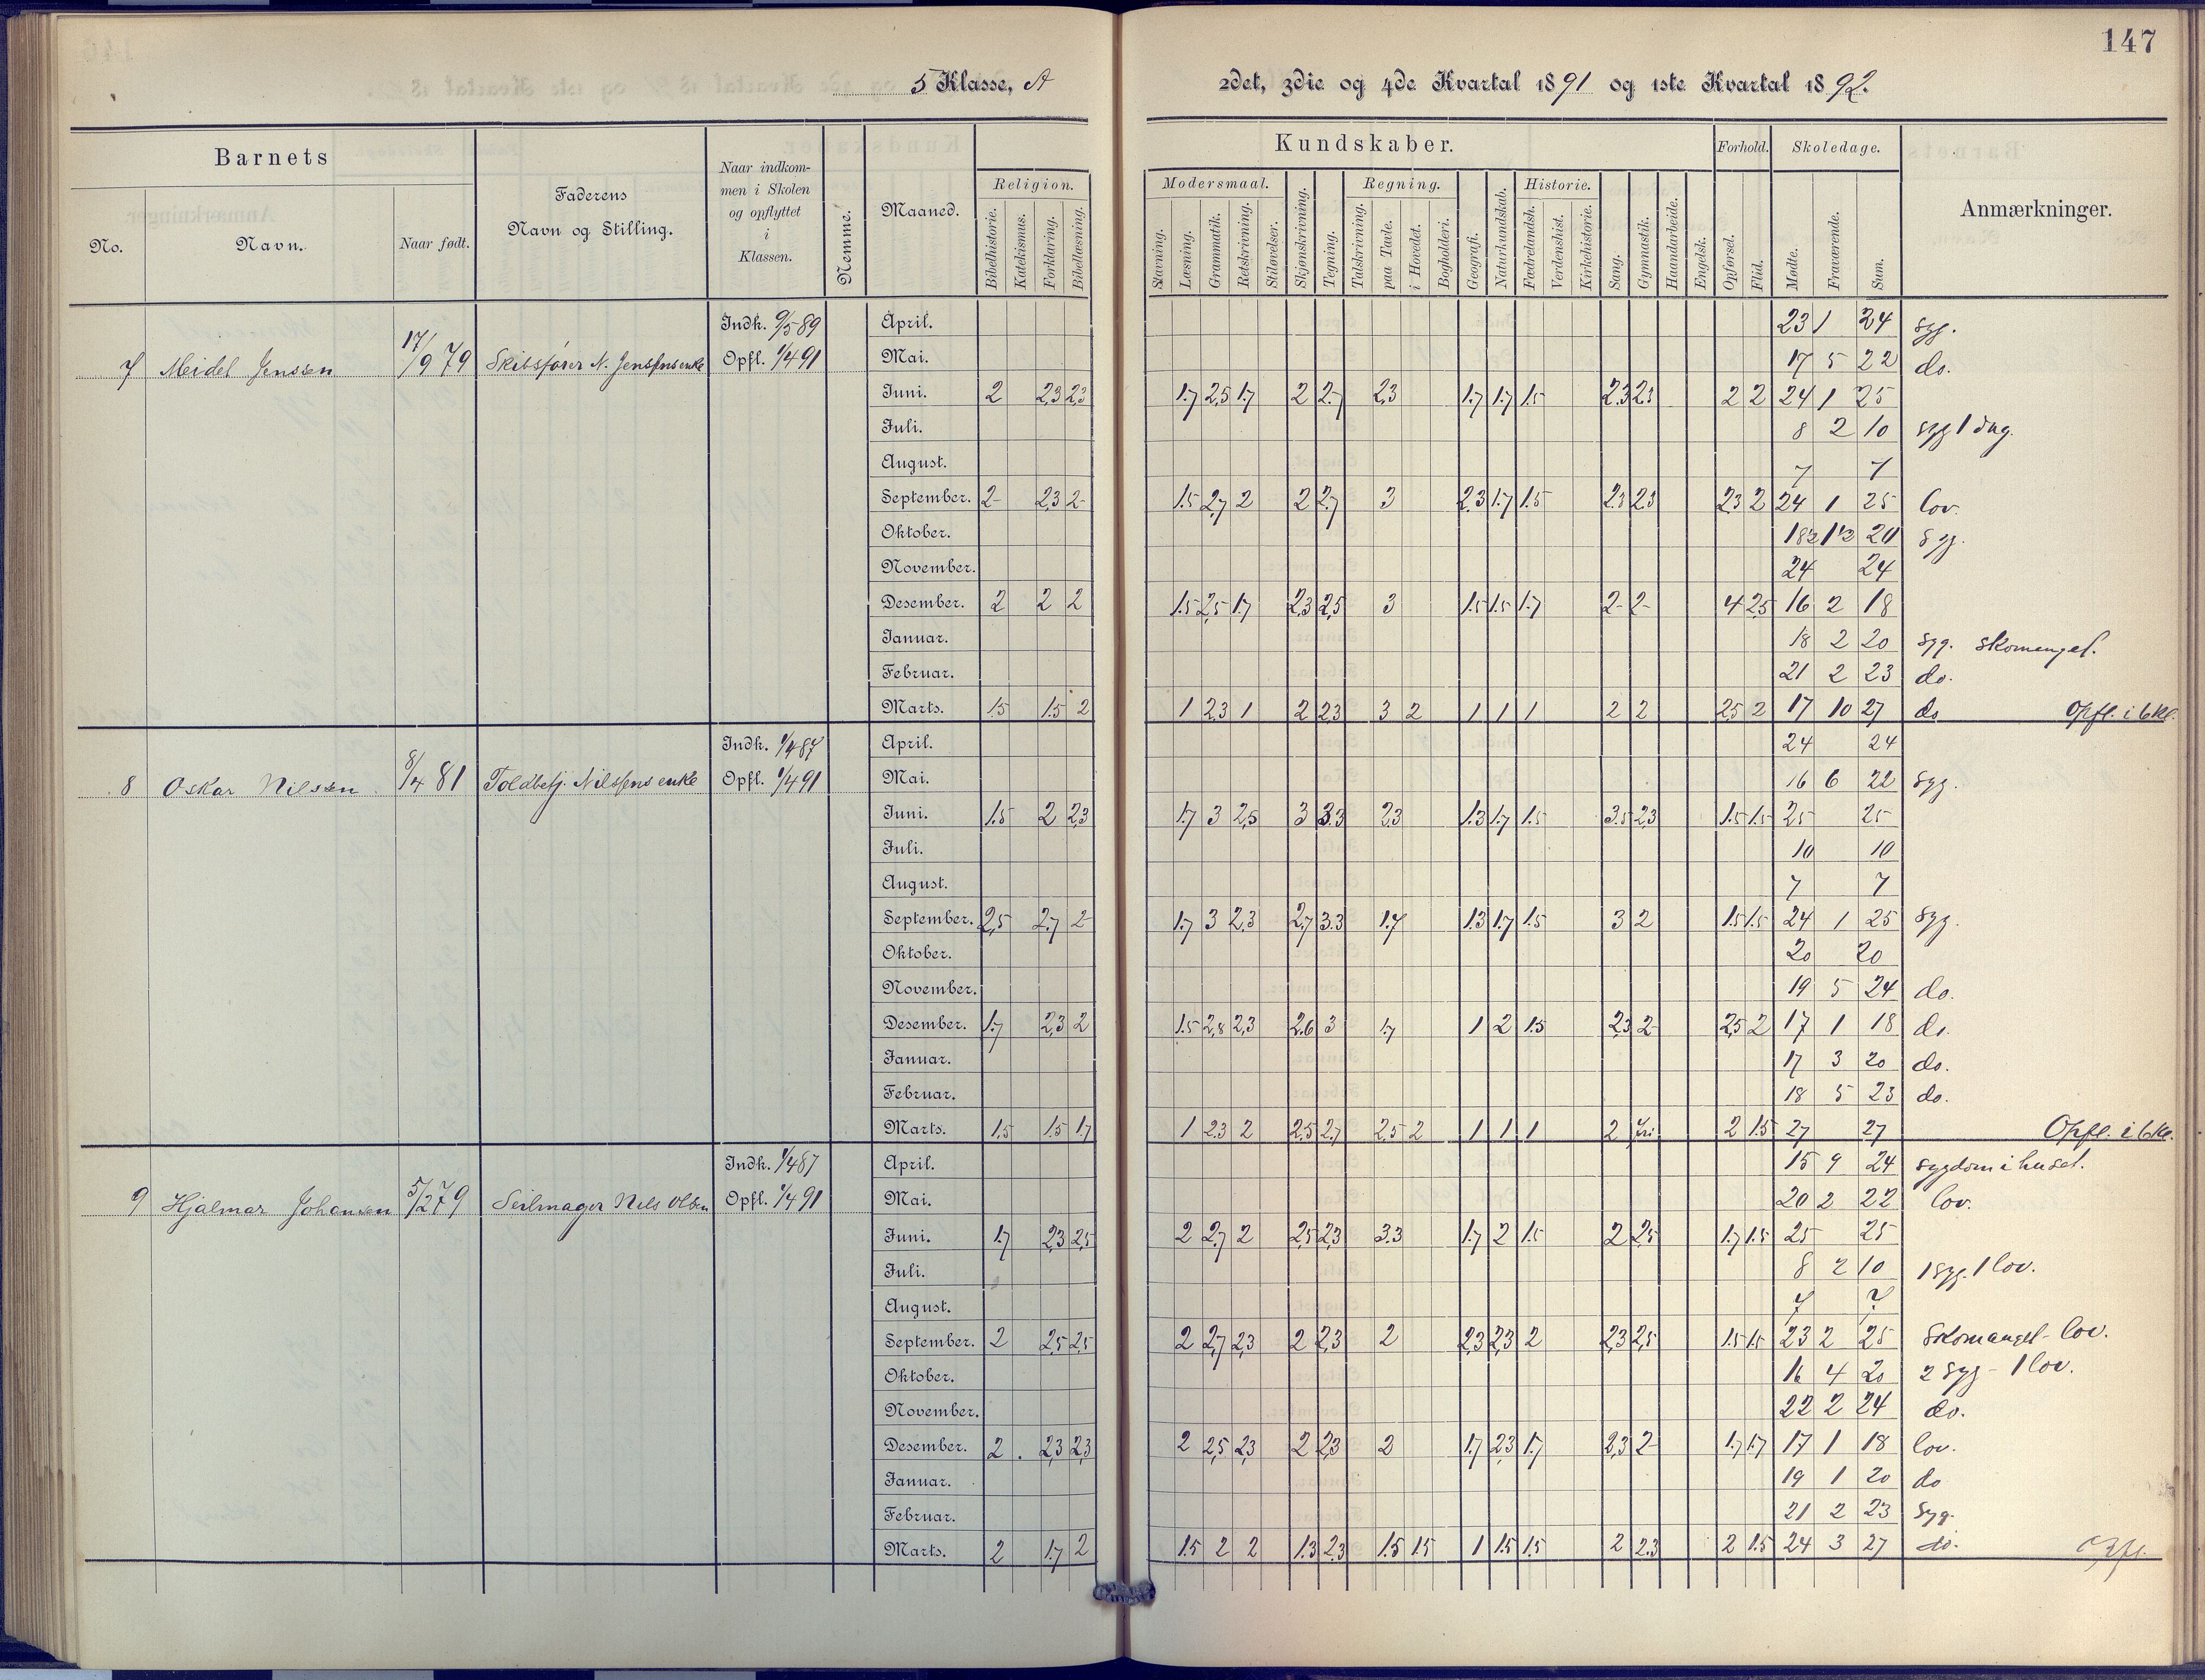 147
5 Klasse, A
2det, 3die og 4de Kvartal 1891 og 1ste Kvartal 1892.
Barnets
No.
Navn.
Naar født.
Faderens
Navn og Stilling.
Naar indkom-
men i Skolen
og opflyttet
i
Klassen.
Nemme.
Maaned.
Kundskaber.
Religion.
Bibelhistorie.
Katekismus.
Forklaring.
Bibellæsning.
Modersmaal.
Stavning.
Læsning.
Grammatik.
Retskrivning.
Stiløvelser.
Skjønskrivning.
Tegning.
Regning.
Talskrivning.
paa Tavle.
i Hovedet.
Bogholderi.
Geografi.
Naturkundskab.
Historie.
Fædrelandsh.
Verdenshist.
Kirkehistorie.
Sang.
Gymnastik.
Haandarbeide.
Engelsk.
Forhold.
Opførsel.
Flid.
Skoledage.
Mødte.
Fraværende.
Sum.
Anmærkninger.
7 Meidel Jenssen 17/9 79 Skibsfører N. Jenssens enke
Indk. 9/5 89
Opfl. 1/4 91
April. 23 1 24 syg.
Mai. 17 5 22 do.
Juni. 2 2,3 2,3 1.7 2,5 1.7 2 2.7 2,3 1.7 1.7 1.5 2.3 2.3 2 2 24 1 25
Juli. 8 2 10 syg 1 dag.
August. 7 7
September. 2- 2,3 2- 1.5 2,7 2 2 2,7 3 2.3 1.7 1.5 2.3 2.3 2.3 2 24 1 25 lov.
Oktober. 18½ 1½ 20 syg.
November. 24 24
Desember. 2 2 2 1.5 2,5 1.7 2,3 2,5 3 1.5 1.5 1.7 2- 2- 4 2,5 16 2 18
Januar. 18 2 20 syg. skomangel.
Februar. 21 2 23 do.
Marts. 1.5 1.5 2 1 2.3 1 2 2.3 3 2 1 1 1 2 2 2.5 2 17 10 27 do Opfl. i 6 Kl.
8 Oskar Nilssen 8/4 81 Toldbetj. Nilssens enke
Indk. 1/4 87
Opfl. 1/4 91
April. 24 24
Mai. 16 6 22 syg.
Juni. 1.5 2 2,3 1.7 3 2,5 3 3.3 2.3 1.3 1.7 1.5 3.5 2.3 1.5 1.5 25 25
Juli. 10 10
August. 7 7
September. 2,5 2.7 2- 1.7 3 2.3 2,7 3.3 1.7 1.3 1.7 1.5 3 2 1.5 1.5 24 1 25 syg.
Oktober. 20 20
November. 19 5 24 do.
Desember. 1.7 2,3 2 1.5 2,8 2,3 2.6 3 1.7 1 2 1.5 2.3 2- 2,5 2 17 1 18 do.
Januar. 17 3 20 do.
Februar. 18 5 23 do.
Marts. 1.5 1.5 1.7 1 2.3 2 2.5 2.7 2.5 2 1 1 1 2 fri 2 1.5 27 27 Opfl. i 6 Kl.
9 Hjalmar Johansen 5/2 79 Seilmager Nils Olsen
Indk. 1/4 87
Opfl. 1/4 91
April. 15 9 24 sygdom i huset.
Mai. 20 2 22 lov.
Juni. 1.7 2,3 2,5 2 2,7 2 2,5 2,3 3.3 1.7 2 1.5 2 2,5 1.7 1.5 25 25
Juli. 8 2 10 1 syg. 1 lov.
August. 7 7
September. 2 2,5 2,5 2 2,7 2,3 2 2,3 2 2,3 2,3 2 2.3 2,5 1.5 1.5 23 2 25 Skomangel - lov.
Oktober. 16 4 20 2 syg - 1 lov.
November. 22 2 24 do.
Desember. 2 2,3 2,3 2 2,5 2,3 2 2,3 2 1.7 2.3 1.7 2,3 2- 1.7 1.7 17 1 18 lov.
Januar. 19 1 20 do
Februar. 21 2 23 syg.
Marts. 2 1.7 2 1.5 2 2 1.3 2.3 1.5 1.5 1 1.5 1.5 2 2.3 2 1.5 24 3 27 do. Opfl.